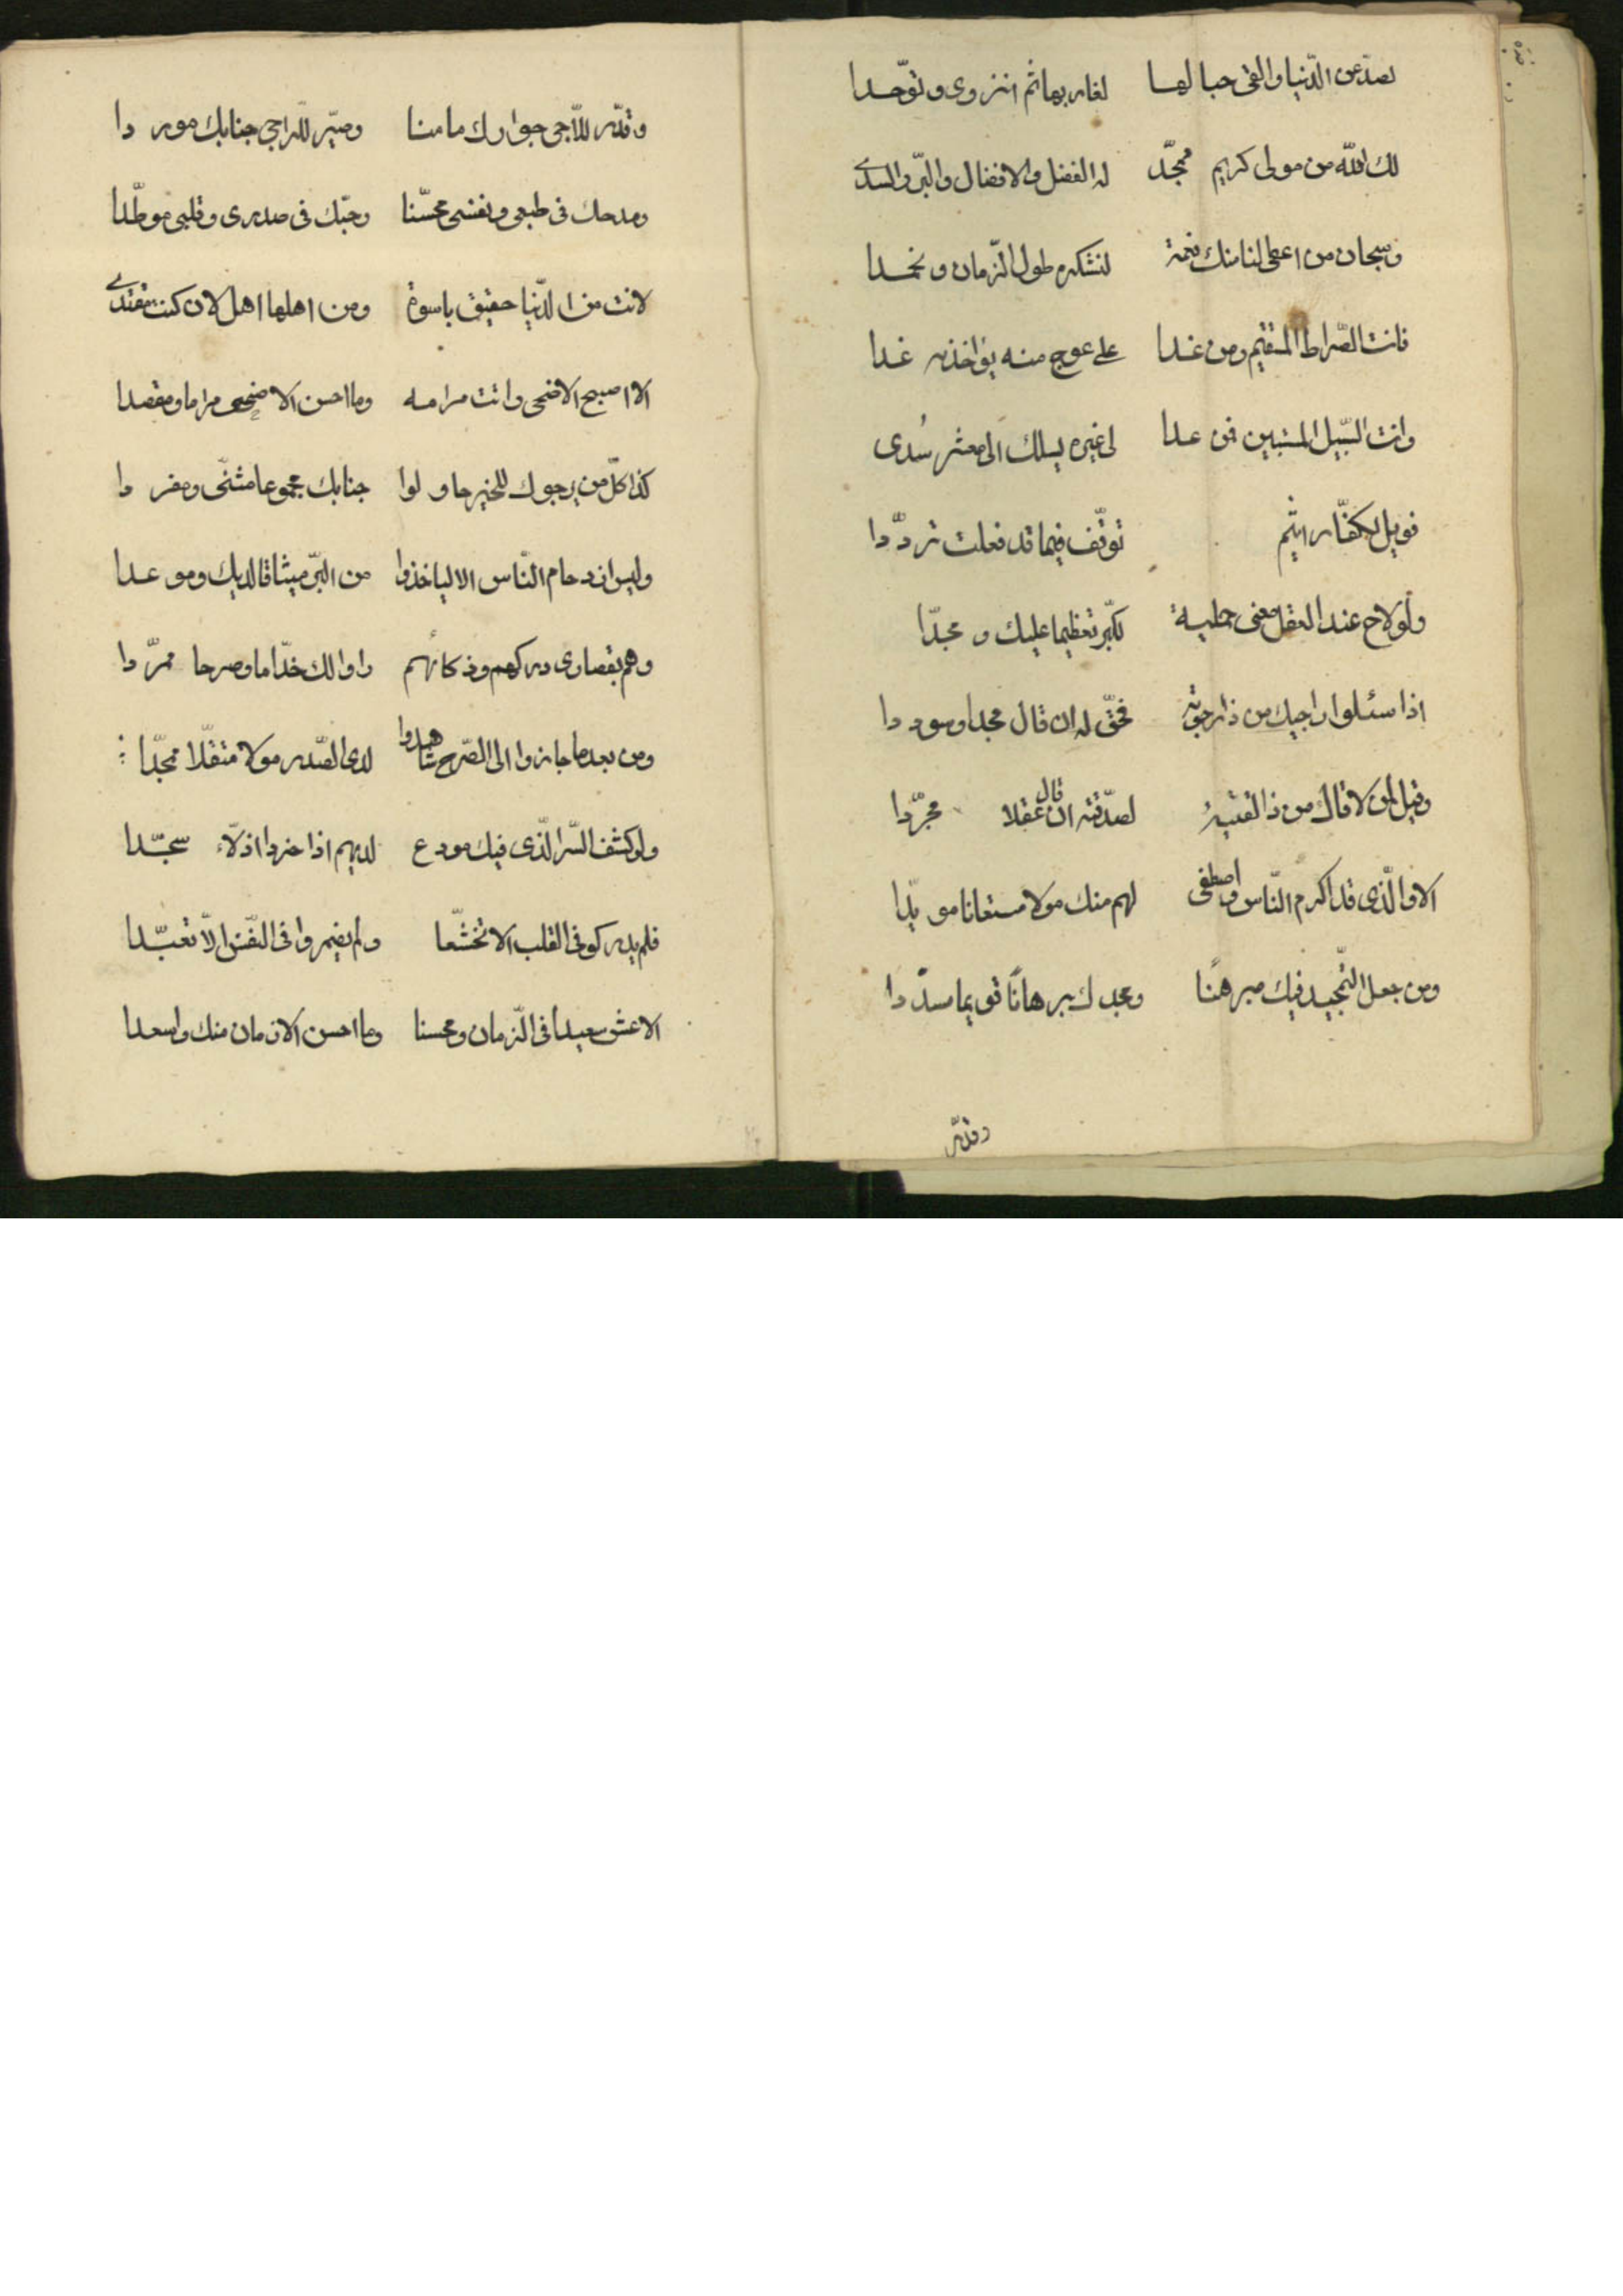 لصدّ عن الدّنيا والقى حبالها لغاربها ثم انزوى وتوّحدا
لك الله من مولى كريم ممجّد له الفضل والافضال والبرّ والسدى
وسبحان من اعطى لنا منك نعمة لنشكره طول الزمان ونحمدا
فانت الصّراط المستقيم ومن غدا على عوج منه يؤاخذه غدا
وانت السّبيل المستبين فمن عدا لى غيره يسلك الى معشر سُدى
فويل لكفّار اثيم توقّف فيما قد فعلت تردّدا
ولو لاح عند العقل معنى جليه لكبّر تعظيما عليك ومجدّا
اذا سئلوا راجيك من ذا رجوته فحقّ له ان قال مجدا وسوددا
وقيل لمن لاقاك من ذا لقيته لصدّقته ان قال عقلا مجرّدا
الا والّذى قد اكرم النّاس واصطفى لهم منك مولا مستعانا مويّدا
ومن جعل التّمجيد فيك مبرهنًا ومجدك برهانًا قويما مسدّدا
وقدّر
وقدّر للّاجى جوارك مامنا وصيّر للرّاجى جنابك موردا
ومدحك فى طبعى ونفسى محسّنا وحبّك فى صدرى وقلبى موطّدا
لانت من الدّنيا حقيق باسوة ومن اهلها اهل لان كنت مقتدى
الا اصبح الاضحى وانت مرامه وما احسن الاضحى مراما ومقصدا
كذا كلّ من يرجوك للخير حاولوا جنابك مجموعا مثنّى ومفردا
وليس ازدحام النّاس الا لياخذوا من البرّ ميثاقا لديك وموعدا
وهم بقصارى دركهم وذكائهم راوا لك خدّاما وصرحا ممرّدا
ومن بعد ما جازوا الى الصّرح شاهدوا لدى الصّدر مولا متفلّا مجدّا
ولو كشف السّر الّذى فيك مودع لديهم اذا خروا اذلّاء سجّدا
فلم يدركو فى القلب الا تخشّعا ولم يضمروا فى النّفس الّا تعبّدا
الا عش سعيدا فى الزّمان ومحسنا وما احسن الازمان منك واسعدا